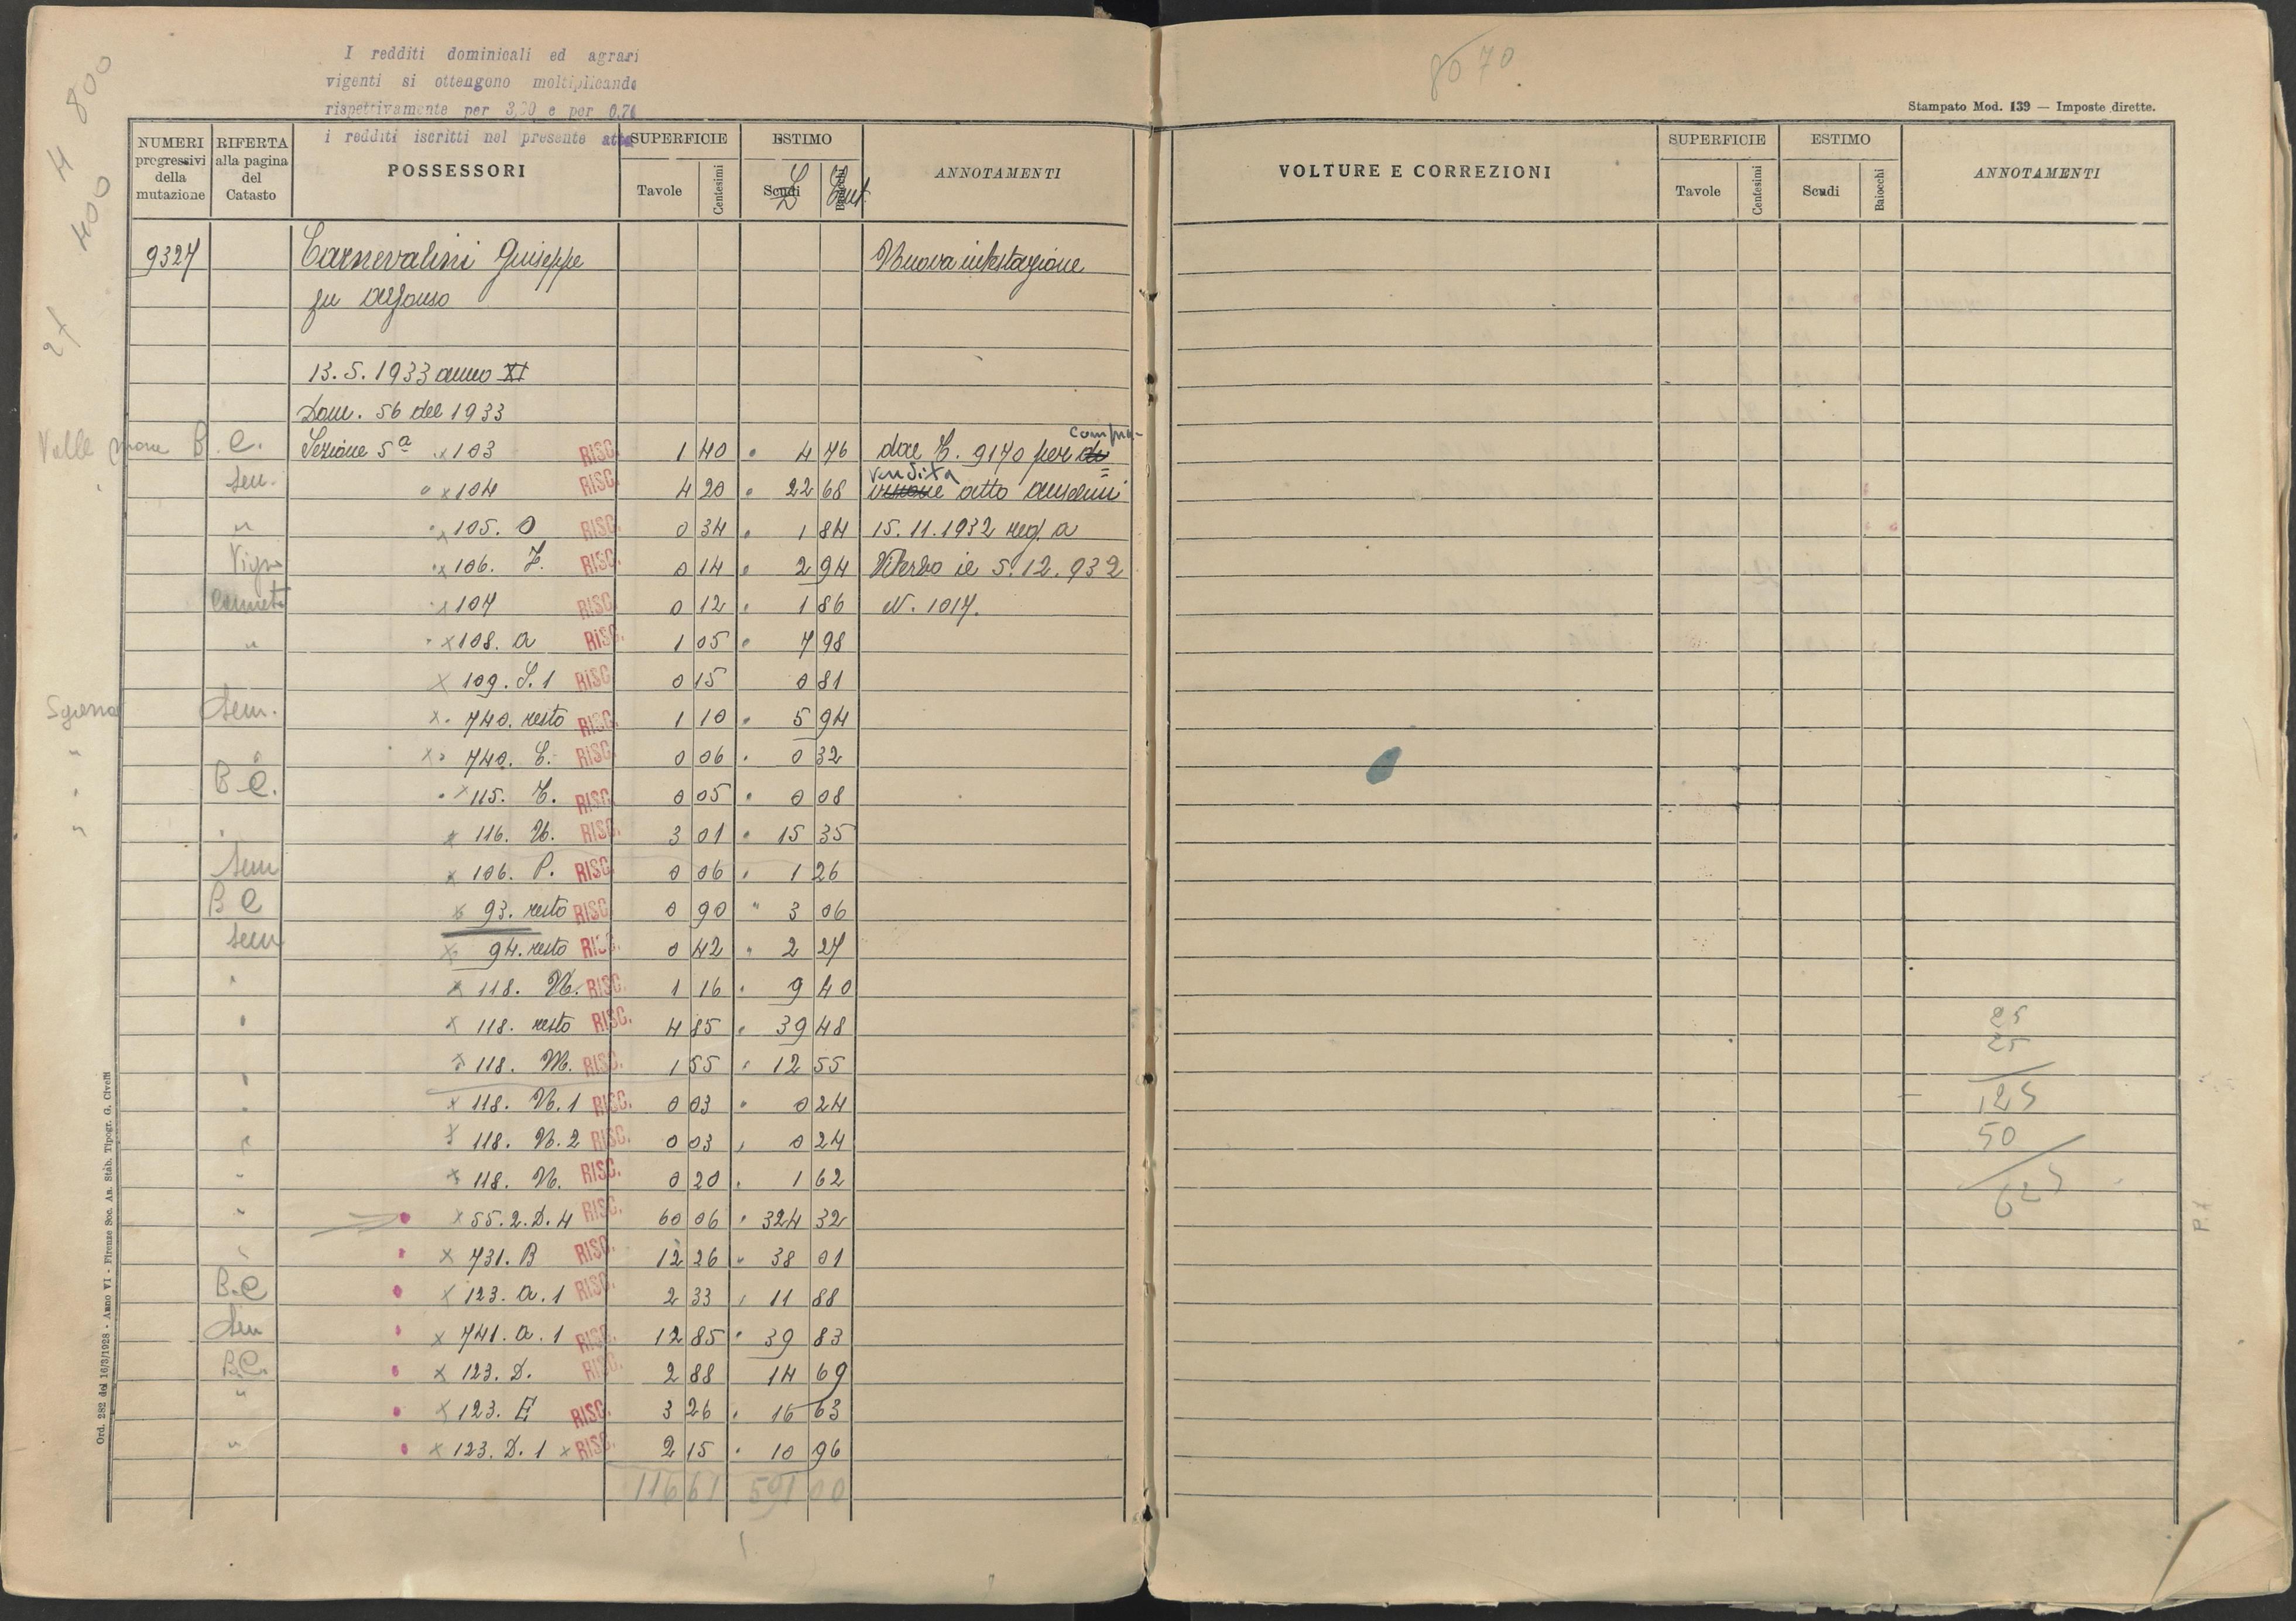 I redditi dominicali ed agrari
vigenti si ottengono moltiplicando
rispettivamente per 3,00 e per 0,70
i redditi iscritti nel presente atto
8070
Stampato Mod. 139 — Imposte dirette.
NUMERI progressivi della mutazione RIFERTA alla pagina del Catasto POSSESSORI SUPERFICIE Tavole Centesimi ESTIMO Scudi Baiocchi ANNOTAMENTI
L Cent
VOLTURE E CORREZIONI SUPERFICIE Tavole Centesimi ESTIMO Scudi Baiocchi ANNOTAMENTI
4 800
400
9327 Carnevalini Giuseppe Nuova intestazione
fu Alfonso
13.5.1933 anno XI
Dom. 56 del 1933
Valle B. C. Sezione 5ª x 103 RISC. 1 40 4 76 dal C. 9170 per compra-
Sem. " x 104 RISC. 4 20 22 68 vendita atto Anselmi
" x 105. O RISC. 0 34 1 84 15.11.1932 reg. a
Vign x 106. Z. RISC. 0 14 2 94 Viterbo il 5.12.932
Canneto x 107 RISC. 0 12 1 86 N. 1017.
" x 108. a RISC. 1 05 7 98
x 109. S.1 RISC 0 15 0 81
Sem. x 740. resto RISC. 1 10 5 94
" x 740. C. RISC. 0 06 0 32
B C. x 115. Z. RISC 0 05 0 08
x 116. N. RISC. 3 01 15 35
Sem x 106. P. RISC. 0 06 1 26
B C x 93. resto RISC 0 90 " 3 06
Sem x 94. resto RISC. 0 42 " 2 27
x 118. N. RISC. 1 16 9 40
x 118. resto RISC. 4 85 39 48
x 118. M. RISC. 1 55 12 55
x 118. N.1 RISC. 0 03 0 24
x 118. N.2 RISC. 0 03 0 24
" x 118. N. RISC. 0 20 1 62
" x 55.2.D.4 RISC. 60 06 324 32
x 731. B RISC. 12 26 38 01
B.C x 123. a.1 RISC. 2 33 11 88
Sem x 741. a.1 RISC. 12 85 39 83
B.C. x 123. D. RISC. 2 88 14 69
" x 123. E RISC. 3 26 16 63
" x 123. D.1 x RISC. 2 15 10 96
116 61 591 00
25
25
125
50
625
Ord. 282 del 16/3/1928 - Anno VI - Firenze Soc. An. Stab. Tipogr. G. Civelli